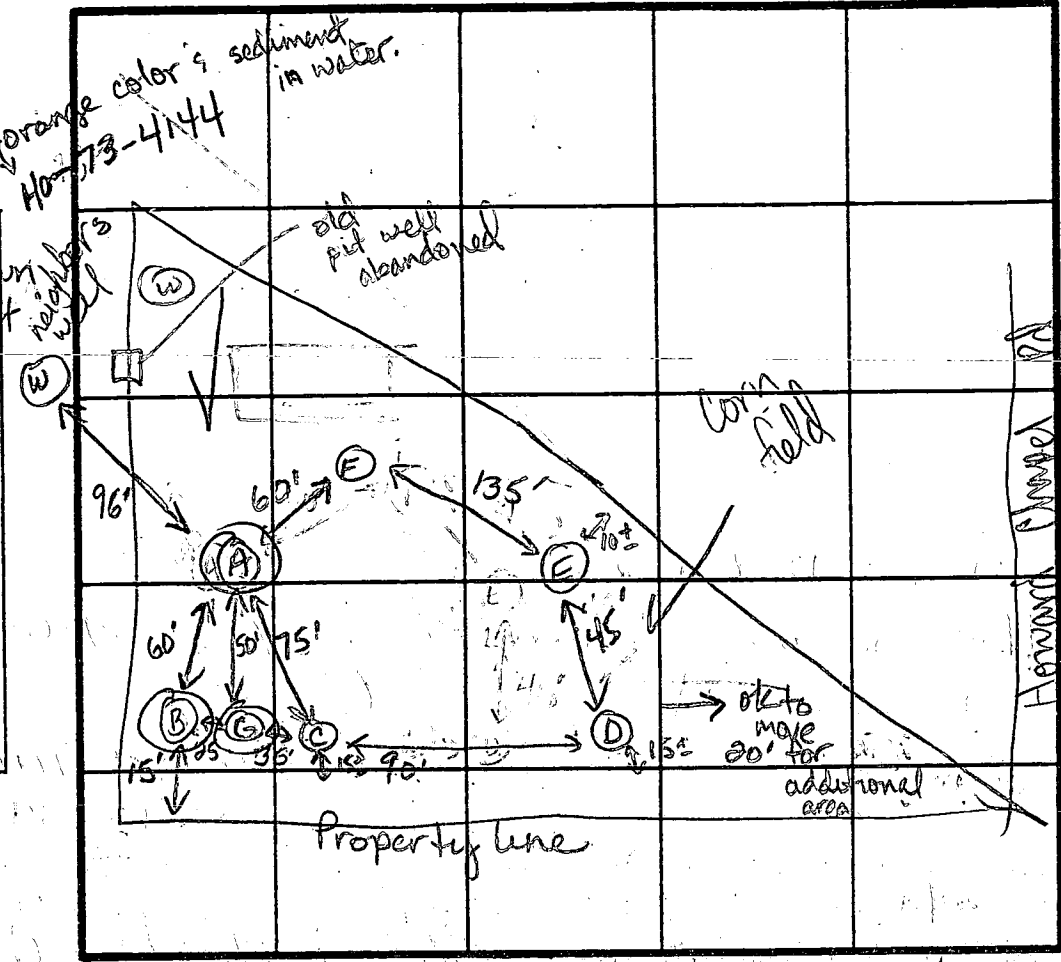 orange color & sediment
in water.
Ho-73-4144
neighbors
well
W
W
old
pit well
abandoned
Corn
field
Howard Chapel Rd
96'
60'
F
135'
A
E
10±
60'
50'
75'
45'
B
G
C
D
25'
35'
15'
15'
90'
15±
ok to
move
20' for
additional
area
Property line